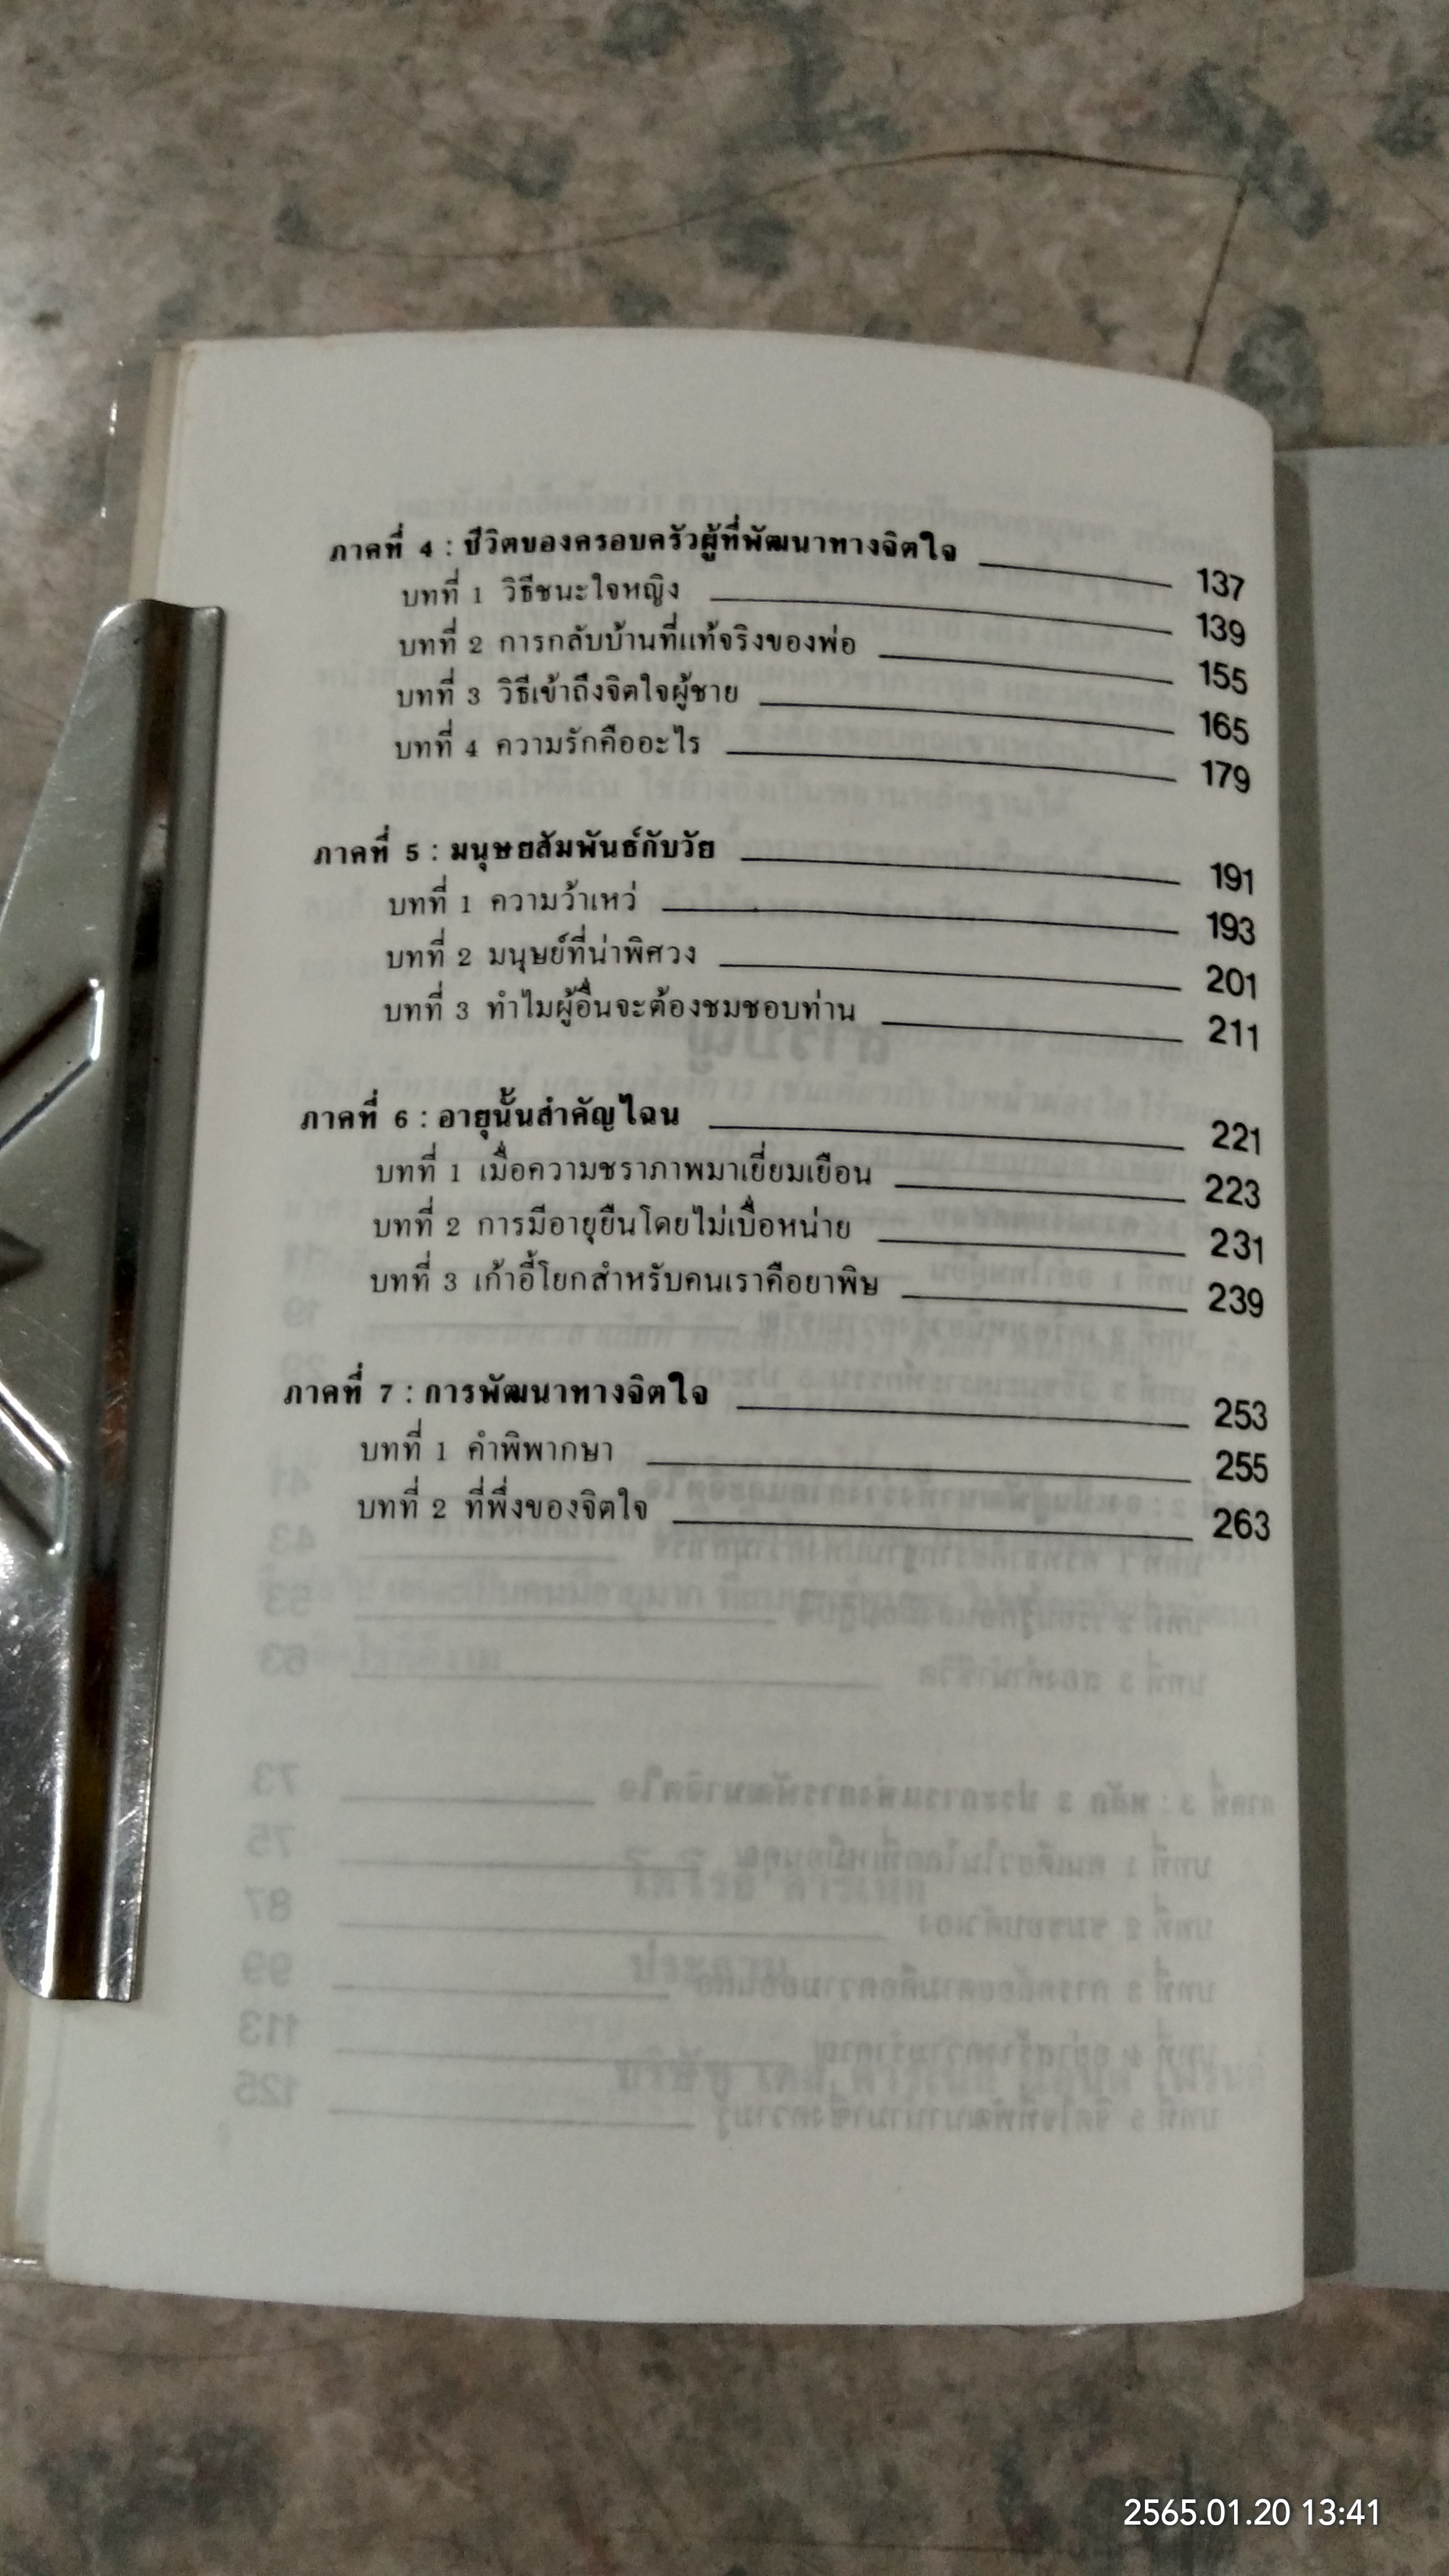 ภาคที่ 4 : ชีวิตของครอบครัวผู้ที่พัฒนาทางจิตใจ 137
บทที่ 1 วิธีชนะใจหญิง 139
บทที่ 2 การกลับบ้านที่แท้จริงของพ่อ 155
บทที่ 3 วิธีเข้าถึงจิตใจผู้ชาย 165
บทที่ 4 ความรักคืออะไร 179
ภาคที่ 5 : มนุษยสัมพันธ์กับวัย 191
บทที่ 1 ความว้าเหว่ 193
บทที่ 2 มนุษย์ที่น่าพิศวง 201
บทที่ 3 ทำไมผู้อื่นจะต้องชมชอบท่าน 211
ภาคที่ 6 : อายุนั้นสำคัญไฉน 221
บทที่ 1 เมื่อความชราภาพมาเยี่ยมเยือน 223
บทที่ 2 การมีอายุยืนโดยไม่เบื่อหน่าย 231
บทที่ 3 เก้าอี้โยกสำหรับคนเราคือยาพิษ 239
ภาคที่ 7 : การพัฒนาทางจิตใจ 253
บทที่ 1 คำพิพากษา 255
บทที่ 2 ที่พึ่งของจิตใจ 263
2565.01.20 13:41